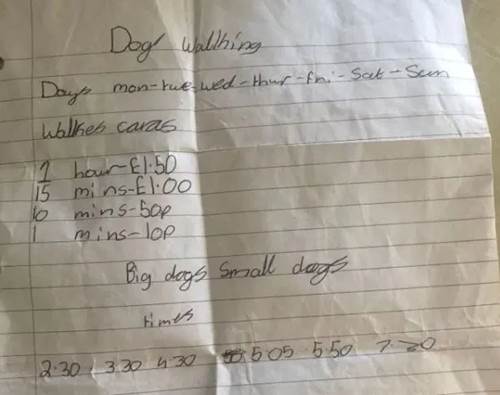 Dog Walking
Days mon-tue-wed-thur-fri-Sat-Sun
Walkes caras
1 hour-£1.50
15 mins-£1.00
10 mins-50p
1 mins-10p
Big dogs small dogs
times
2.30 3.30 4.30 5.05 5.50 7.20